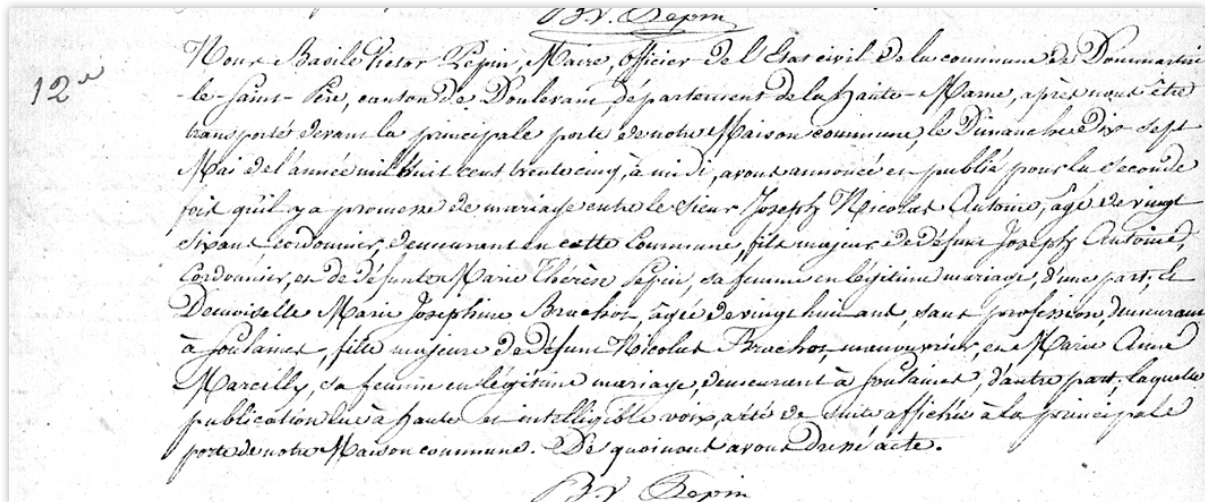 B.V. Pepin
12e
Nous Basile Victor Pepin, Maire, Officier de l'Etat civil de la commune de Dommartin
-le-Saint-Père, canton de Doulevant, département de la haute-Marne, après nous être
transporté devant la principale porte de notre Maison commune, le Dimanche Dix-Sept
Mai de l'année mil huit cent trente cinq, à midi, avons annoncé et publié pour la Seconde
fois qu'il y a promesse de mariage entre le Sieur Joseph Nicolas Antoine, âgé de vingt
six ans cordonnier, demeurant en cette Commune, fils majeur de défunt Joseph Antoine,
Cordonnier, et de défunte Marie Thérèse Pepin, sa femme en légitime mariage, d'une part, et
Demoiselle Marie Josephine Bruchot âgée de vingt huit ans, sans profession, demeurant
à Soulaines, fille majeure de défunt Nicolas Bruchot, manouvrier, et Marie Anne
Marcilly, sa femme en légitime mariage, demeurant à Soulaines, d'autre part. laquelle
publication lue à haute et intelligible voix, a été de suite affichée à la principale
porte de notre Maison commune. De quoi nous avons dressé acte.
B.V. Pepin